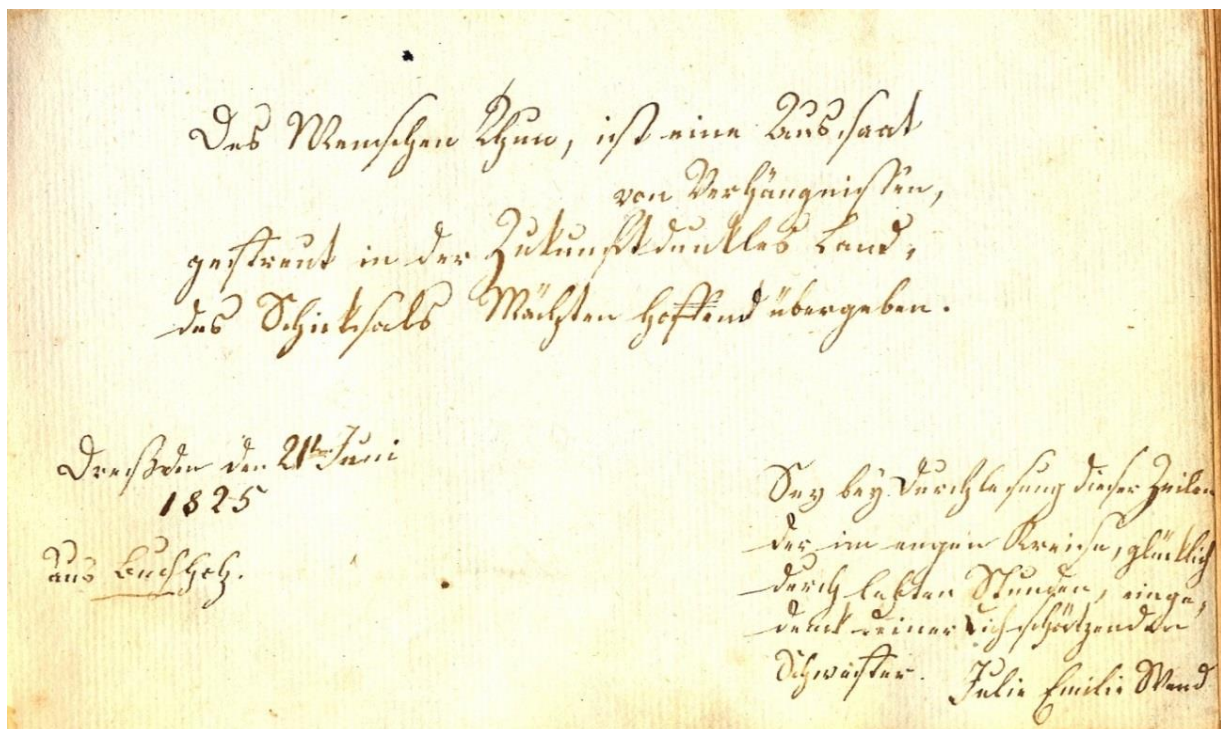 Des Menschen Thun, ist eine Aussaat
von Verhängnissen,
gestreut in der Zukunft dunkles Land,
des Schicksals Mächten hoffend übergeben.
Dreßden den 21t Juni
1825
aus Buchholz.
Sey bey Durchlesung dieser Zeilen
der im engen Kreise, glücklich
durchlebten Stunden, einge,
denk deiner Dich schätzenden
Schwester.
Julie Emilie Wend